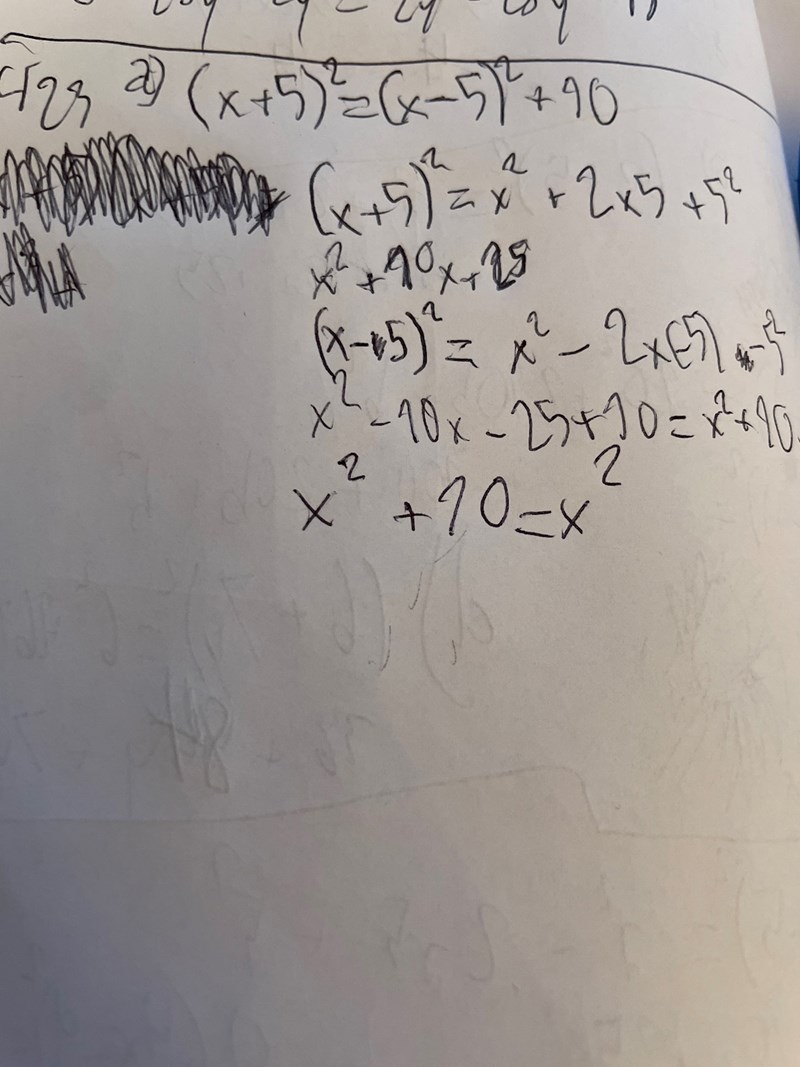 4123 a) (x+5)² = (x-5)² + 10
(x+5)² = x² + 2x5 + 5²
x² + 10x + 25
(x-5)² = x² - 2x(-5) - 5²
x² - 10x - 25 + 10 = x² + 10
x² + 10 = x²